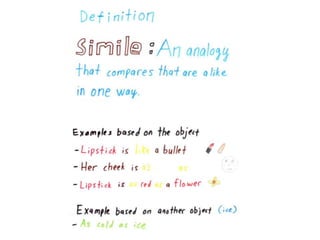 Definition
Simile: An analogy
that compares that are alike
in one way.
Examples based on the object
- Lipstick is like a bullet
- Her cheek is as as
- Lipstick is as red as a flower
Example based on another object (ice)
- As cold as ice